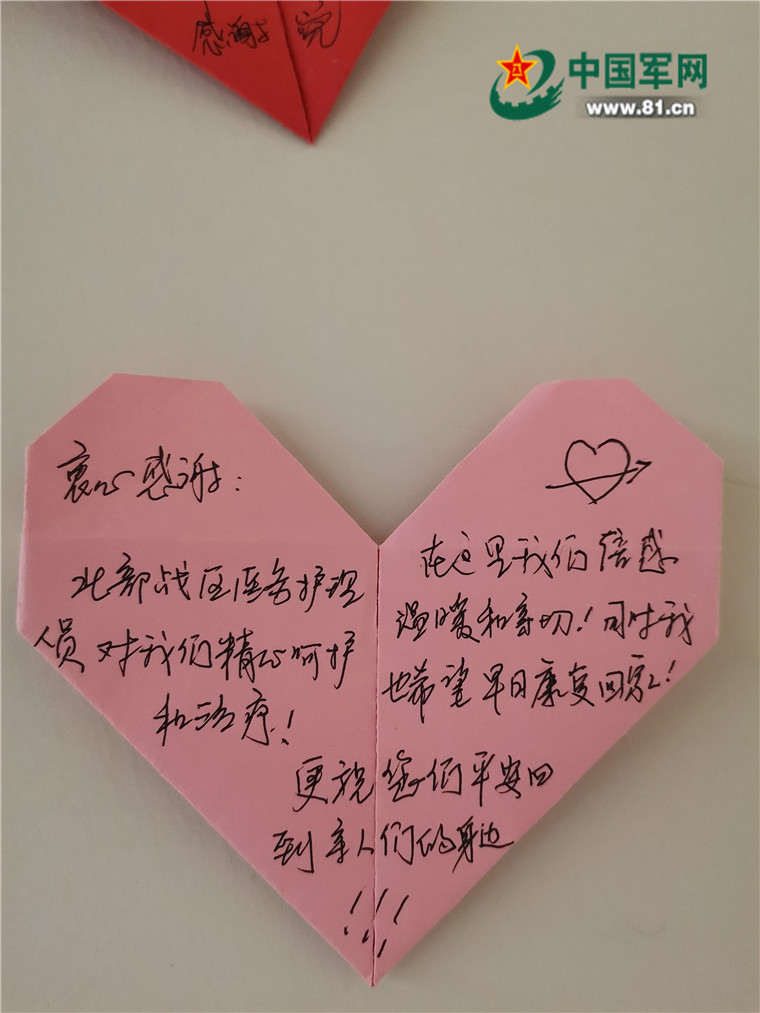 感谢
中国军网
www.81.cn
衷心感谢:
北部战区医务护理
人员对我们精心呵护
和治疗!
在这里我们倍感
温暖和亲切!同时我
也希望早日康复回家!
更祝您们平安回
到亲人们的身边
!!!